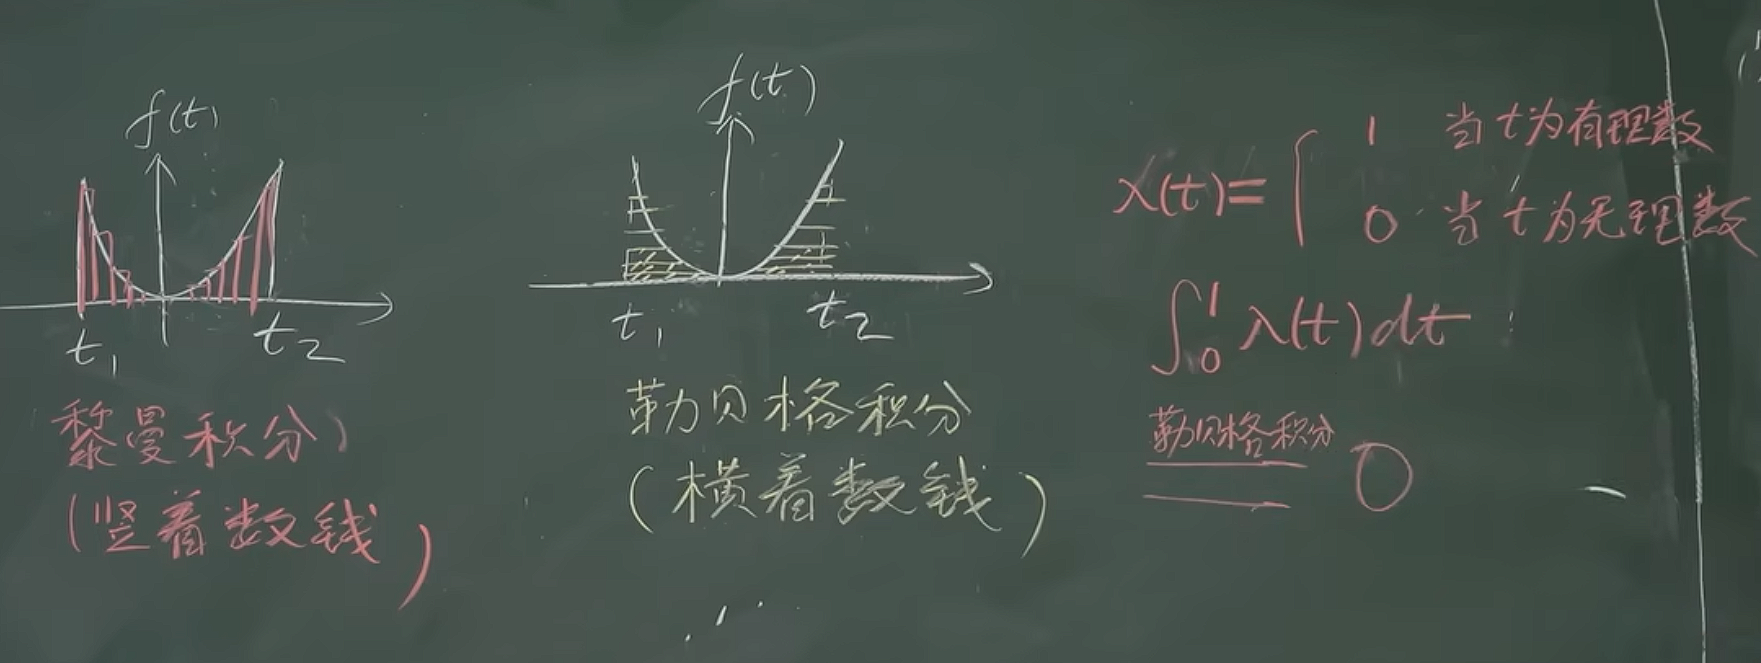 f(t)
t₁ t₂
黎曼积分
(竖着数钱)
f(t)
t₁ t₂
勒贝格积分
(横着数钱)
λ(t)={ 1 当t为有理数
0 当t为无理数
∫₀¹ λ(t)dt
勒贝格积分
═ 0